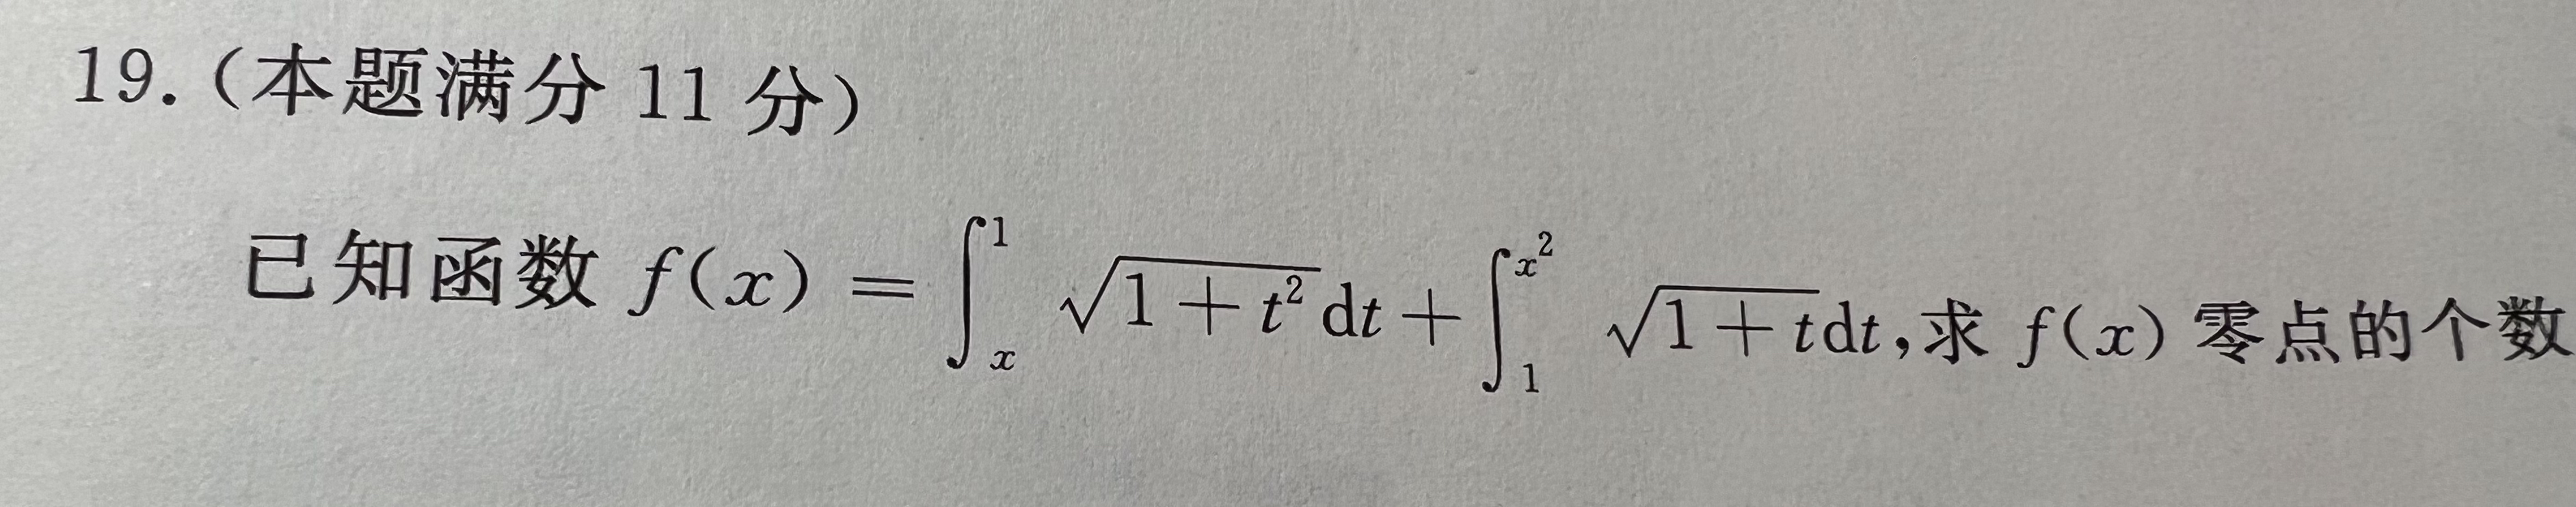 19.(本题满分 11 分)
已知函数 f(x) = ∫_x^1 √(1+t²) dt + ∫_1^{x²} √(1+t) dt,求 f(x) 零点的个数